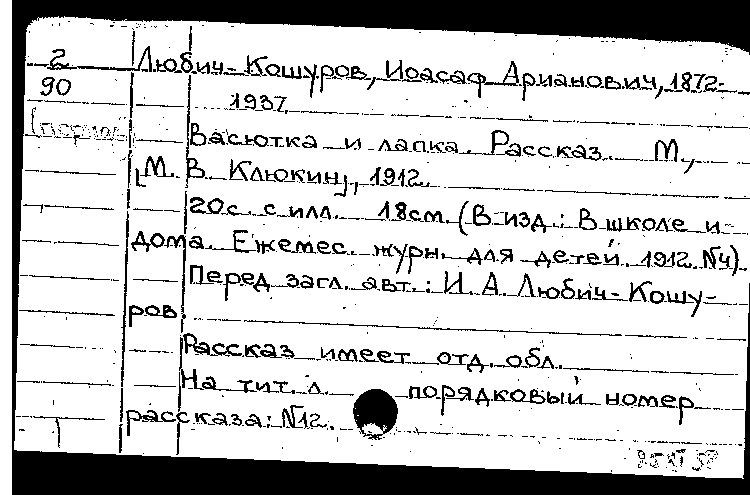 2 Любич-Кошуров, Иоасаф Арианович, 1872-
90 1937.
Васютка и лапка. Рассказ. М.,
[М. В. Клюкин], 1912.
20с. с илл. 18см. (В изд.: В школе и
дома. Ежемес. журн. для детей. 1912. №4).
Перед загл. авт.: И. А. Любич-Кошу-
ров.
Рассказ имеет отд. обл.
На тит. л. порядковый номер
рассказа: №12.